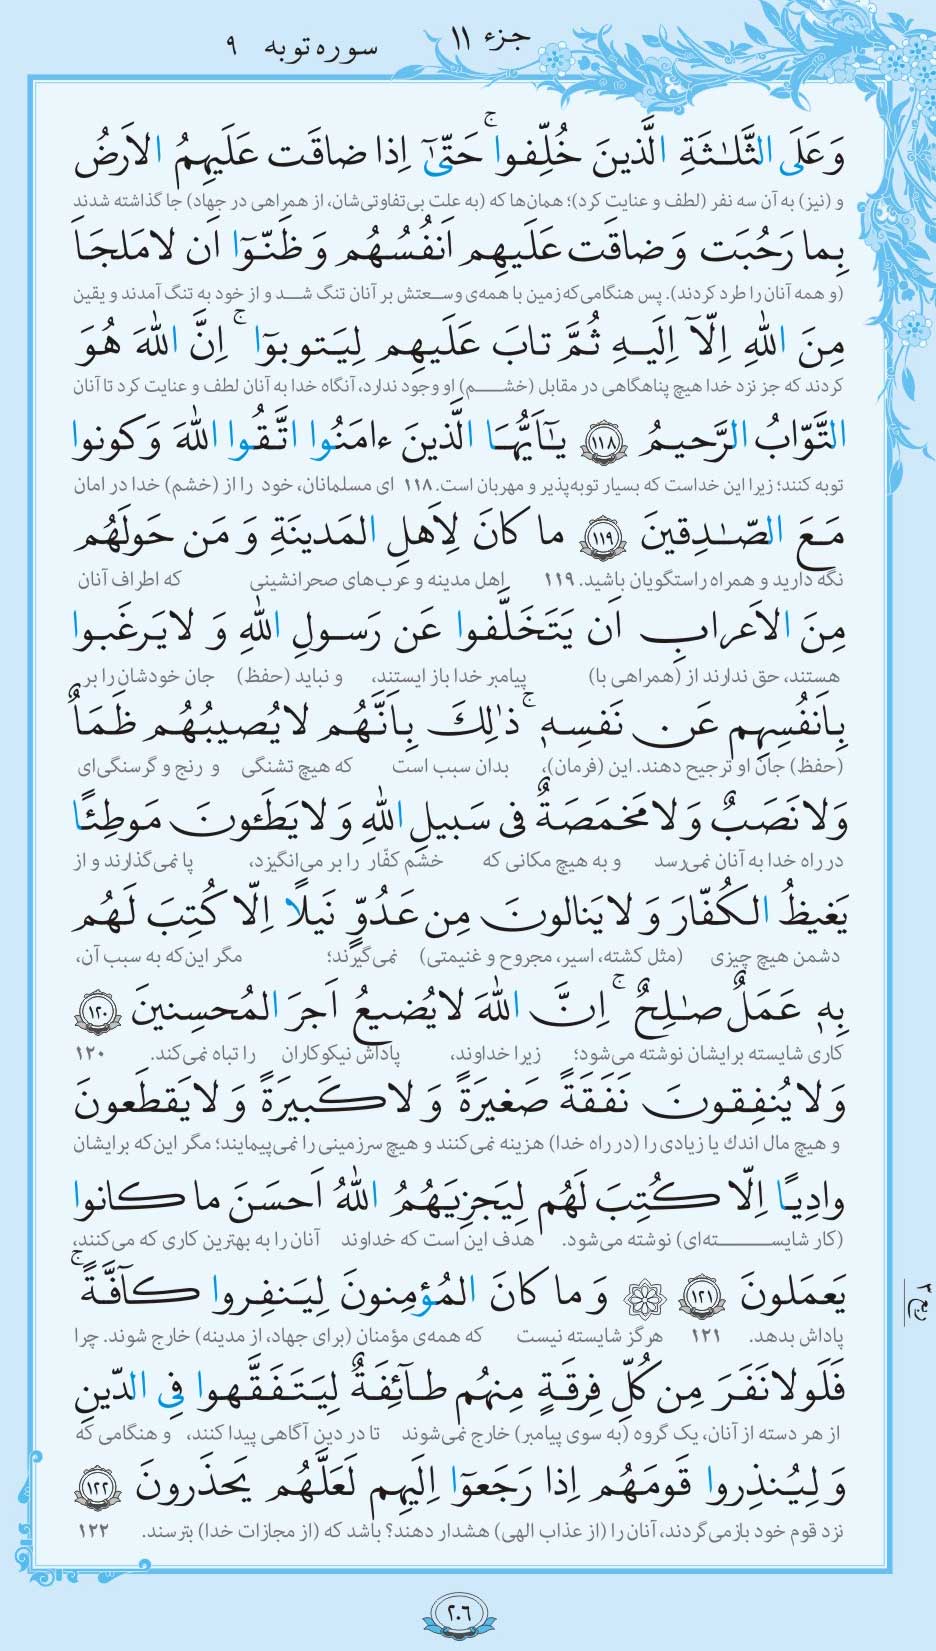 جزء ۱۱
سوره توبه ۹
وَ عَلَى الثَّلـٰثَةِ الَّذينَ خُلِّفوا ۚ حَتّىٰٓ اِذا ضاقَت عَلَيهِمُ الاَرضُ
و (نیز) به آن سه نفر (لطف و عنایت کرد)؛ همان‌ها که (به علت بی‌تفاوتی‌شان، از همراهی در جهاد) جا گذاشته شدند
بِما رَحُبَت وَ ضاقَت عَلَيهِم اَنفُسُهُم وَ ظَنّـوٓا اَن لا مَلجَاَ
(و همه آنان را طرد کردند). پس هنگامی‌که زمین با همه‌ی وسـعتش بر آنان تنگ شـد و از خود به تنگ آمدند و یقین
مِنَ اللّٰهِ اِلّآ اِلَيـهِ ثُمَّ تابَ عَلَيهِم لِيَـتوبوٓا ۚ اِنَّ اللّٰهَ هُوَ
کردند که جز نزد خدا هیچ پناهگاهی در مقابل (خشـم) او وجود ندارد، آنگاه خدا به آنان لطف و عنایت کرد تا آنان
التَّوّابُ الرَّحيمُ ﴿۱۱۸﴾ يـٰٓاَيُّهَـا الَّذينَ ءامَنُوا اتَّقُوا اللّٰهَ وَ كونوا
توبه کنند؛ زیرا این خداست که بسیار توبه‌پذیر و مهربان است. ۱۱۸ ای مسلمانان، خود را از (خشم) خدا در امان
مَـعَ الصّـٰدِقينَ ﴿۱۱۹﴾ ما كانَ لِاَهلِ المَدينَةِ وَ مَن حَولَهُم
نگه دارید و همراه راستگویان باشید. ۱۱۹ اهل مدینه و عرب‌های صحرانشینی که اطراف آنان
مِنَ الاَعرابِ اَن يَتَخَلَّفوا عَن رَسـولِ اللّٰهِ وَ لا يَـرغَبـوا
هستند، حق ندارند از (همراهی با) پیامبر خدا باز ایستند، و نباید (حفظ) جان خودشان را بر
بِاَنفُسِهِم عَن نَفسِـهٖ ۚ ذٰلِكَ بِاَنَّهُم لا يُصيبُهُم ظَمَأٌ
(حفظ) جان او ترجیح دهند. این (فرمان)، بدان سبب است که هیچ تشنگی و رنج و گرسنگی‌ای
وَ لا نَصَبٌ وَ لا مَخمَصَةٌ فى سَبيلِ اللّٰهِ وَ لا يَطَـٔونَ مَوطِئًـا
در راه خدا به آنان نمی‌رسد و به هیچ مکانی که خشم کفّار را بر می‌انگیزد، پا نمی‌گذارند و از
يَغيظُ الكُفّارَ وَ لا يَنالونَ مِن عَدُوٍّ نَيلًا اِلّا كُتِبَ لَهُم
دشمن هیچ چیزی (مثل کشته، اسیر، مجروح و غنیمتی) نمی‌گیرند؛ مگر این‌که به سبب آن،
بِهٖ عَمَلٌ صـٰلِحٌ ۚ اِنَّ اللّٰهَ لا يُضيعُ اَجرَ المُحسِنينَ ﴿۱۲۰﴾
کاری شایسته برایشان نوشته می‌شود؛ زیرا خداوند، پاداش نیکوکاران را تباه نمی‌کند. ۱۲۰
وَ لا يُنفِـقونَ نَفَقَةً صَغيرَةً وَ لا كَبيرَةً وَ لا يَقطَعونَ
و هیچ مال اندك یا زیادی را (در راه خدا) هزینه نمی‌کنند و هیچ سرزمینی را نمی‌پیمایند؛ مگر این‌که برایشان
وادِيًـا اِلّا كُتِبَ لَهُم لِيَجزِيَـهُمُ اللّٰهُ اَحسَنَ ما كانوا
(کار شایسـته‌ای) نوشته می‌شود. هدف این است که خداوند آنان را به بهترین کاری که می‌کنند،
يَعمَلونَ ﴿۱۲۱﴾ وَ ما كانَ المُؤمِنونَ لِيَـنفِـروا كـآفَّةً ۚ
پاداش بدهد. ۱۲۱ هرگز شایسته نیست که همه‌ی مؤمنان (برای جهاد، از مدینه) خارج شوند. چرا
ربع ۳
فَلَولا نَفَرَ مِن كُلِّ فِرقَـةٍ مِنهُم طـآئِفَةٌ لِيَـتَفَقَّـهوا فِى الدّينِ
از هر دسته از آنان، یک گروه (به سوی پیامبر) خارج نمی‌شوند تا در دین آگاهی پیدا کنند، و هنگامی که
وَ لِيُـنذِروا قَومَهُم اِذا رَجَعوٓا اِلَيهِم لَعَلَّهُم يَحذَرونَ ﴿۱۲۲﴾
نزد قوم خود بازمی‌گردند، آنان را (از عذاب الهی) هشدار دهند؟ باشد که (از مجازات خدا) بترسند. ۱۲۲
۲۰۶